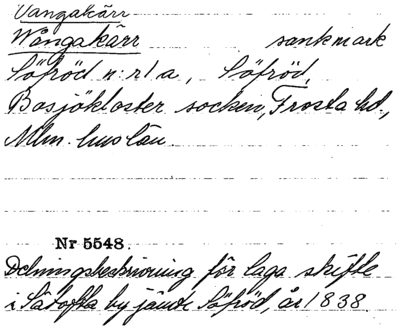 Vångakärr
Wångakärr sankmark
Söfröd n:r 1 a, Söfröd,
Bosjökloster socken, Frosta hd.,
Mlm. hus län
Nr 5548.
Delningsbeskrivning för laga skifte
i Sätofta by jämte Söfröd, år 1838